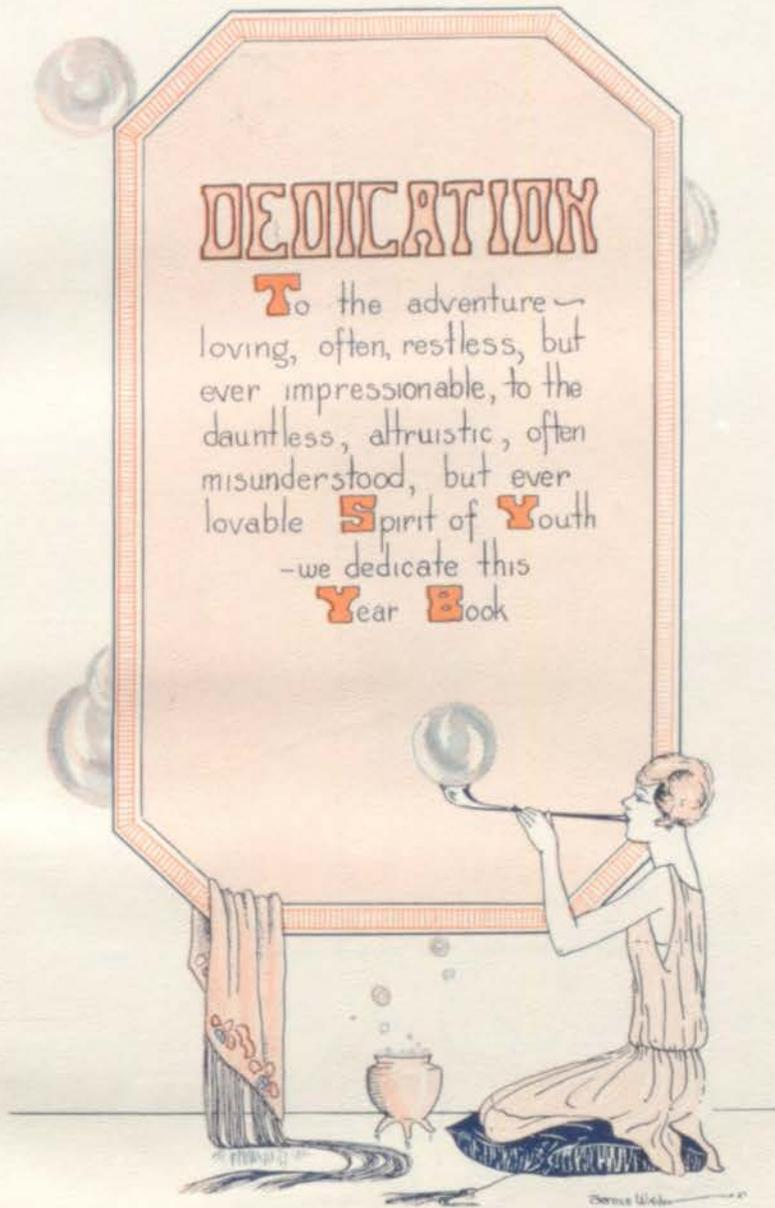 DEDICATION
To the adventure-
loving, often, restless, but
ever impressionable, to the
dauntless, altruistic, often
misunderstood, but ever
lovable Spirit of Youth
-we dedicate this
Year Book